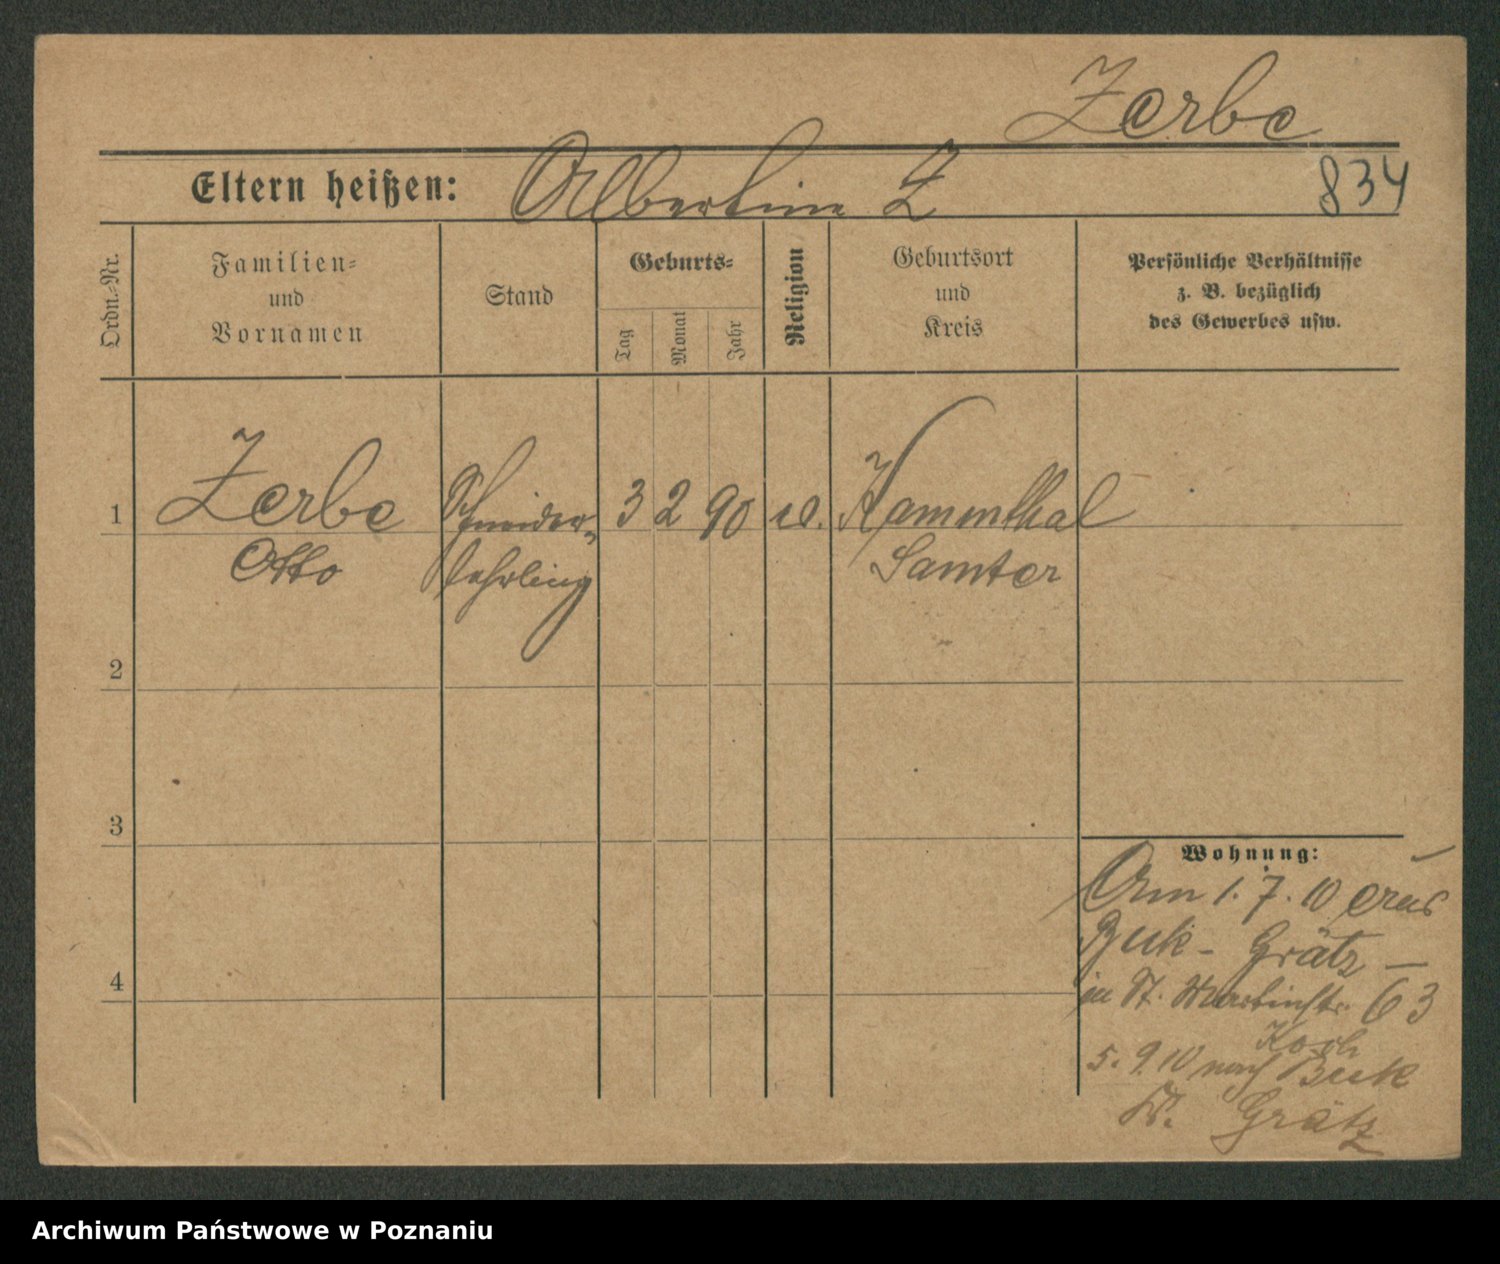 Zerbe
Eltern heißen: Albertine Z
834
Ordn.-Nr.
Familien-
und
Vornamen
Stand
Geburts-
Tag
Monat
Jahr
Religion
Geburtsort
und
Kreis
Persönliche Verhältnisse
z. B. bezüglich
des Gewerbes usw.
1 Zerbe Schneider- 3 2 90 ev. Kammthal
Otto lehrling Samter
2
3
4
Wohnung:
Am 1. 7. 10 aus
Buk - Grätz -
in St. Martinstr. 63
Koch
5. 9. 10 nach Buk
Kr. Grätz
Archiwum Państwowe w Poznaniu